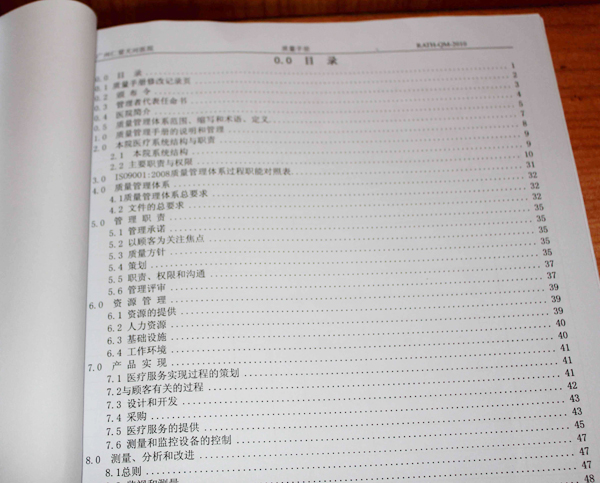 广州仁爱天河医院 质量手册 KATH-QM-2010
0.0 目 录
0.0 目 录 1
0.1 质量手册修改记录页 2
0.2 颁 布 令 3
0.3 管理者代表任命书 4
0.4 医院简介 5
0.5 质量管理体系范围、缩写和术语、定义 7
1.0 质量管理手册的说明和管理 8
2.0 本院医疗系统结构与职责 9
2.1 本院系统结构 9
2.2 主要职责与权限 10
3.0 ISO9001:2008质量管理体系过程职能对照表 31
4.0 质量管理体系 32
4.1质量管理体系总要求 32
4.2 文件的总要求 32
5.0 管 理 职 责 35
5.1 管理承诺 35
5.2 以顾客为关注焦点 35
5.3 质量方针 35
5.4 策划 35
5.5 职责、权限和沟通 37
5.6 管理评审 37
6.0 资 源 管 理 39
6.1 资源的提供 39
6.2 人力资源 39
6.3 基础设施 40
6.4 工作环境 40
7.0 产 品 实 现 41
7.1 医疗服务实现过程的策划 41
7.2与顾客有关的过程 41
7.3 设计和开发 42
7.4 采购 43
7.5 医疗服务的提供 43
7.6 测量和监控设备的控制 45
8.0 测量、分析和改进 47
8.1总则 47
48